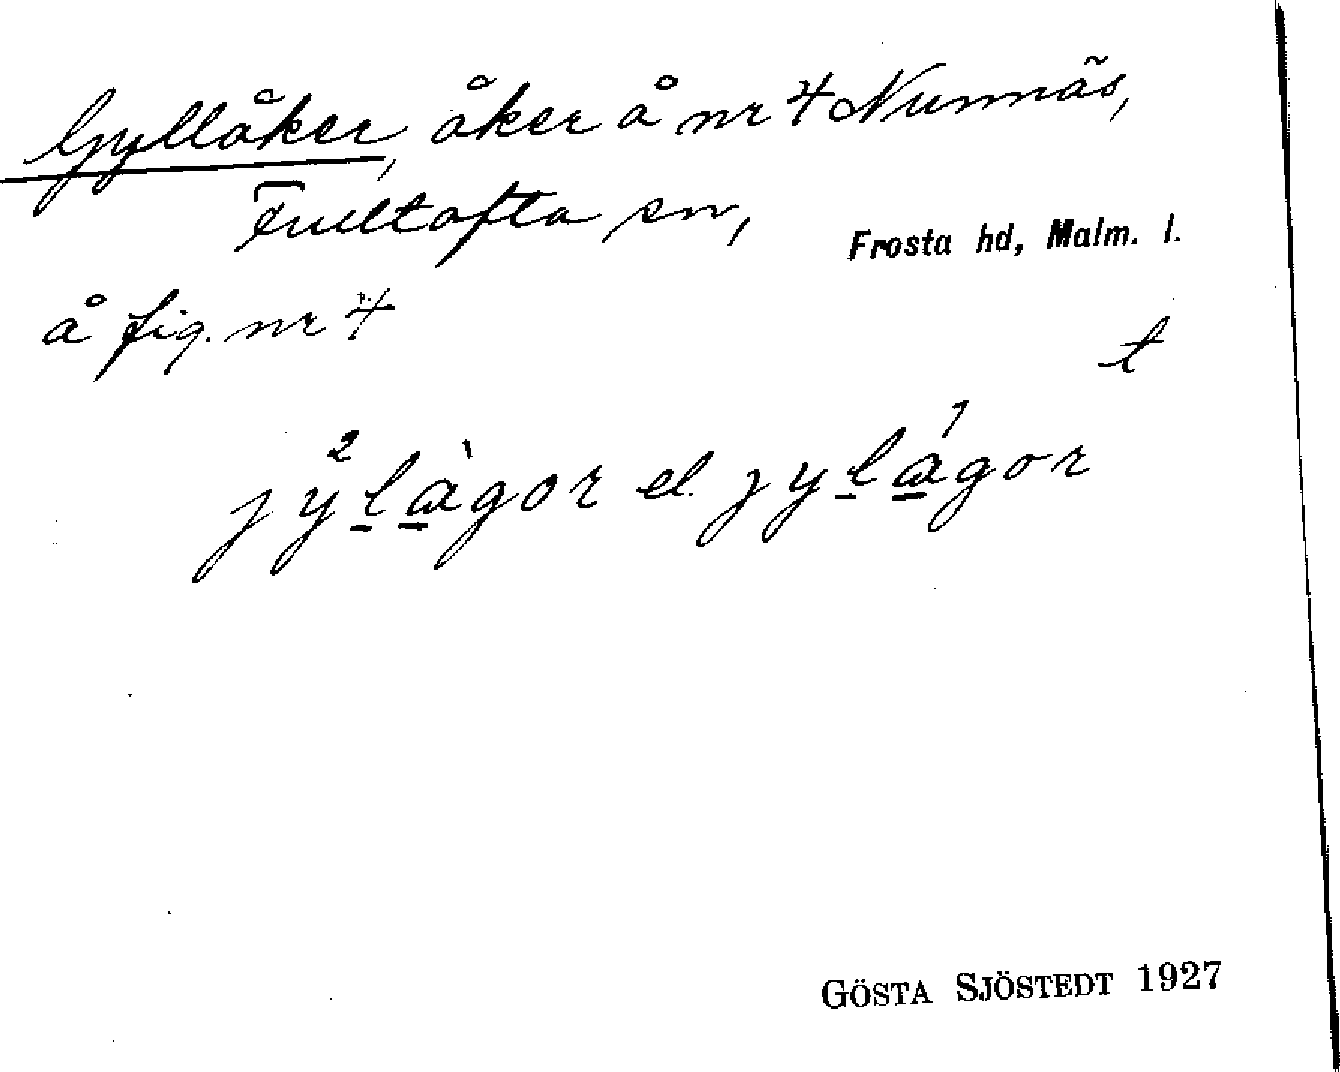 Gyllåker, åker å nr 4 Nunnäs,
Fulltofta sn, Frosta hd, Malm. l.
å fig. nr 4
t
jy²làgor el. jylá¹gor
GÖSTA SJÖSTEDT 1927